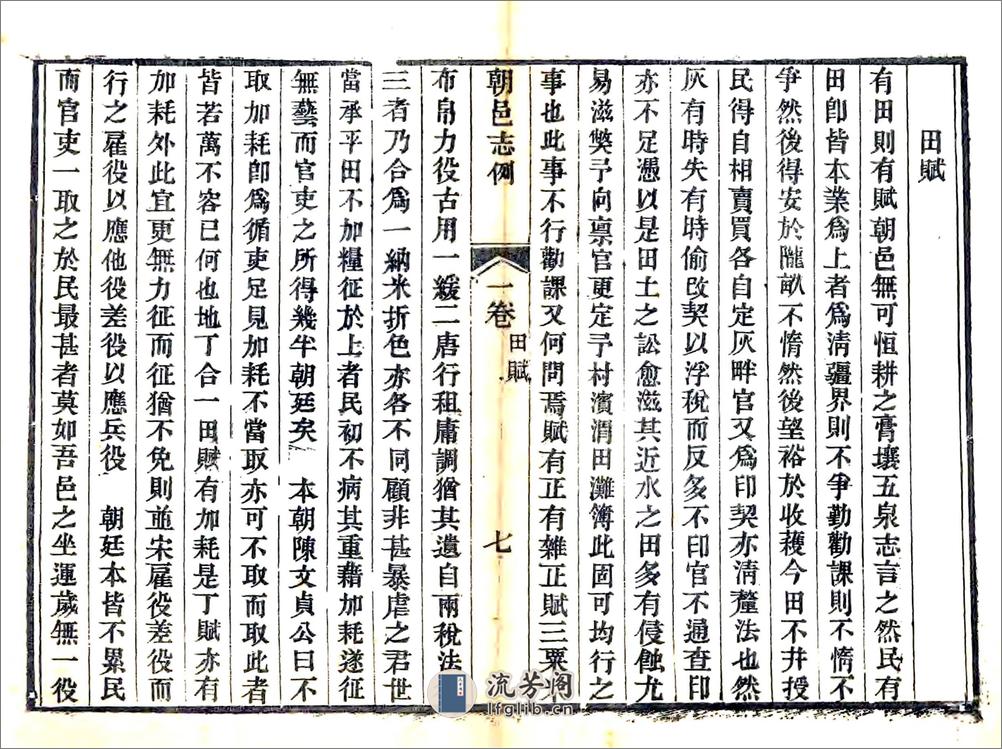 田賦
有田則有賦朝邑無可恒耕之膏壤五泉志言之然民有
田卽皆本業爲上者爲淸疆界則不爭勤勸課則不惰不
爭然後得安於隴畝不惰然後望裕於收穫今田不井授
民得自相賣買各自定灰畔官又爲印契亦淸釐法也然
灰有時失有時偷改契以浮稅而反多不印官不通查印
亦不足憑以是田土之訟愈滋其近水之田多有侵蝕尤
易滋獘予向稟官更定予村濱渭田灘簿此固可均行之
事也此事不行勸課又何問焉賦有正有雜正賦三粟米
朝邑志例
一卷
田賦
七
布帛力役古用一緩二唐行租庸調猶其遺自兩稅法行
三者乃合爲一納米折色亦各不同顧非甚暴虐之君世
當承平田不加糧征於上者民初不病其重藉加耗遂征
無藝而官吏之所得幾半朝廷矣 本朝陳文貞公曰不
取加耗卽爲循吏足見加耗不當取亦可不取而取此者
皆若萬不容已何也地丁合一田賦有加耗是丁賦亦有
加耗外此宜更無力征而征猶不免則並宋雇役差役而
行之雇役以應他役差役以應兵役 朝廷本皆不累民
而官吏一取之於民最甚者莫如吾邑之坐運歲無一役
流芳阁
lfglib.cn